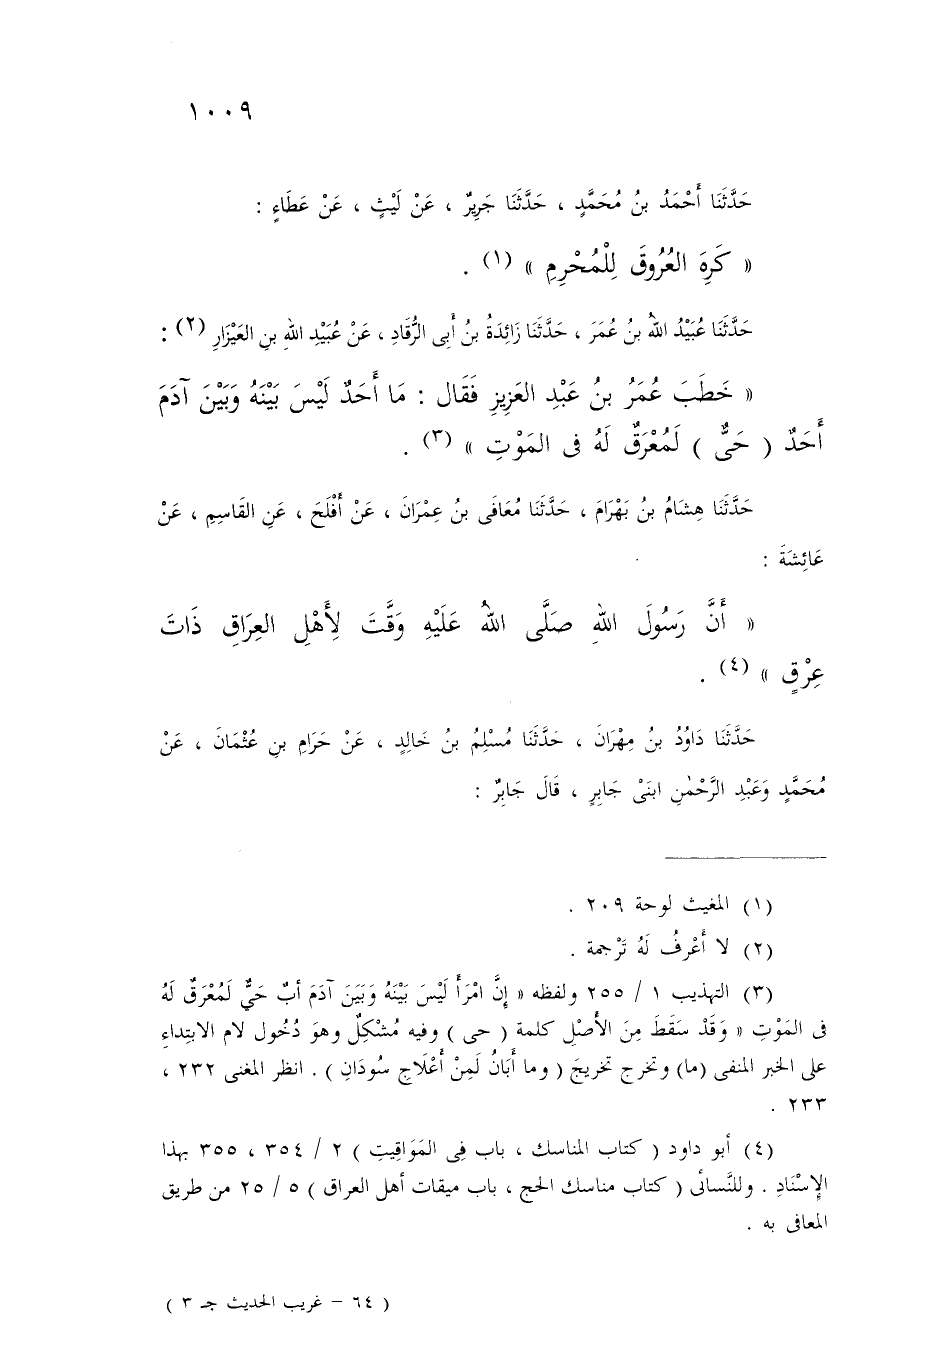 ١٠٠٩
حَدَّثَنَا أَحْمَدُ بنُ مُحَمَّدٍ ، حَدَّثَنَا جَرِيرٌ ، عَنْ لَيْثٍ ، عَنْ عَطَاءٍ :
« كَرِهَ العُرُوقَ لِلْمُحْرِمِ » (١) .
حَدَّثَنَا عُبَيْدُ اللهُ بنُ عُمَرَ ، حَدَّثَنَا زَائِدَةُ بنُ أَبِى الرُّقَادِ ، عَنْ عُبَيْدِ اللهِ بنِ العَيْزَارِ (٢) :
« خَطَبَ عُمَرُ بنُ عَبْدِ العَزِيزِ فَقَال : مَا أَحَدٌ لَيْسَ بَيْنَهُ وَبَيْنَ آدَمَ
أَحَدٌ ( حَىٌّ ) لَمُعْرَقٌ لَهُ فى المَوْتِ » (٣) .
حَدَّثَنَا هِشَامُ بنُ بَهْرَامَ ، حَدَّثَنَا مُعَافَى بنُ عِمْرَانَ ، عَنْ أَفْلَحَ ، عَنِ القَاسِمِ ، عَنْ
عَائِشَةَ :
« أَنَّ رَسُولَ اللهِ صَلَّى اللهُ عَلَيْهِ وَقَّتَ لِأَهْلِ العِرَاقِ ذَاتَ
عِرْقٍ » (٤) .
حَدَّثَنَا دَاوُدُ بنُ مِهْرَانَ ، حَدَّثَنَا مُسْلِمُ بنُ خَالِدٍ ، عَنْ حَرَامِ بنِ عُثْمَانَ ، عَنْ
مُحَمَّدٍ وَعَبْدِ الرَّحْمٰنِ ابنَىْ جَابِرٍ ، قَالَ جَابِرٌ :
(١) المغيث لوحة ٢٠٩ .
(٢) لا أَعْرِفُ لَهُ تَرْجمة .
(٣) التهذيب ١ / ٢٥٥ ولفظه « إِنَّ امْرَأً لَيْسَ بَيْنَهُ وَبَيَنَ آدَمَ أبٌ حَيٌّ لَمُعْرَقٌ لَهُ
فى المَوْتِ » وَقَدْ سَقَطَ مِنَ الأَصْلِ كلمة ( حى ) وفيه مُشْكِلٌ وهوَ دُخُول لام الابتداءِ
على الخبر المنفى (ما) وتخرج تخريجَ ( وما أَبَانُ لَمِنْ أَعْلَاجِ سُودَانِ ) . انظر المغنى ٢٣٢ ،
٢٣٣ .
(٤) أبو داود ( كتاب المناسك ، باب فِى المَوَاقِيتِ ) ٢ / ٣٥٤ ، ٣٥٥ بهذا
الإِسْنَادِ . وللنَّسائى ( كتاب مناسك الحج ، باب ميقات أهل العراق ) ٥ / ٢٥ من طريق
المعافى به .
( ٦٤ – غريب الحديث جـ ٣ )